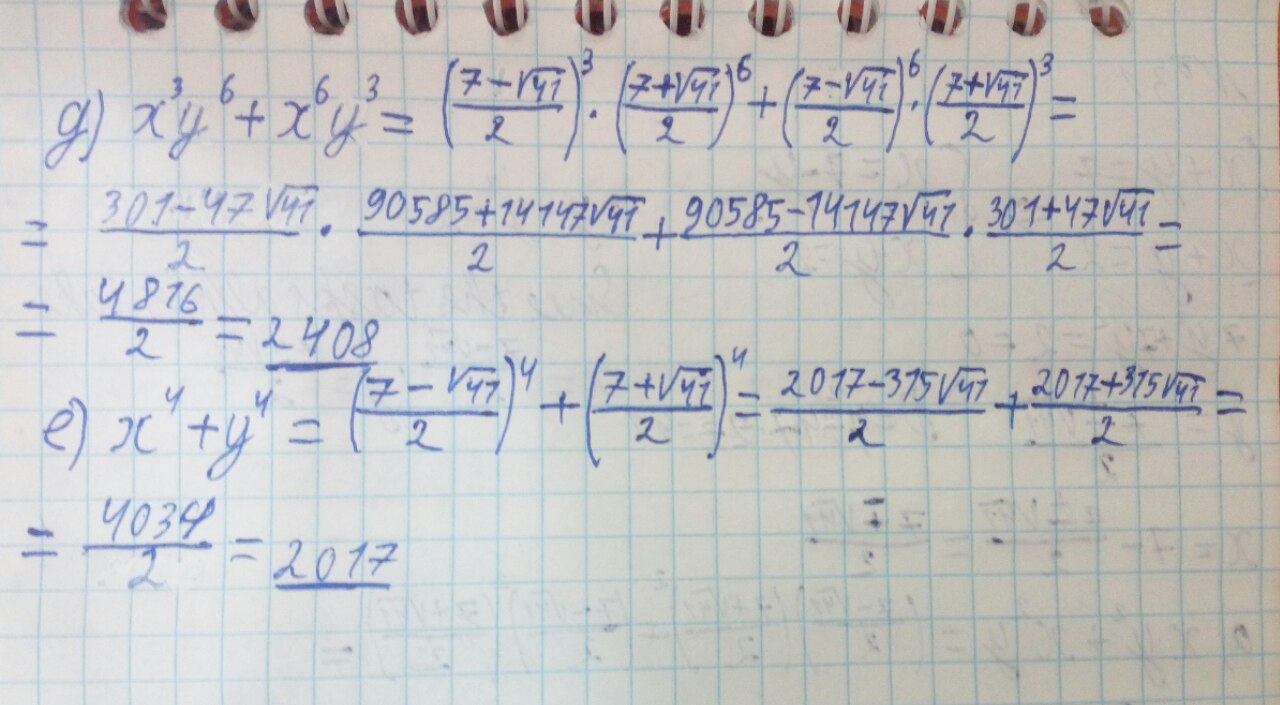 д) x³y⁶ + x⁶y³ = ((7 − √41)/2)³ · ((7 + √41)/2)⁶ + ((7 − √41)/2)⁶ · ((7 + √41)/2)³ =
= (301 − 47√41)/2 · (90585 + 14147√41)/2 + (90585 − 14147√41)/2 · (301 + 47√41)/2 =
= 4816/2 = 2408
е) x⁴ + y⁴ = ((7 − √41)/2)⁴ + ((7 + √41)/2)⁴ = (2017 − 315√41)/2 + (2017 + 315√41)/2 =
= 4034/2 = 2017